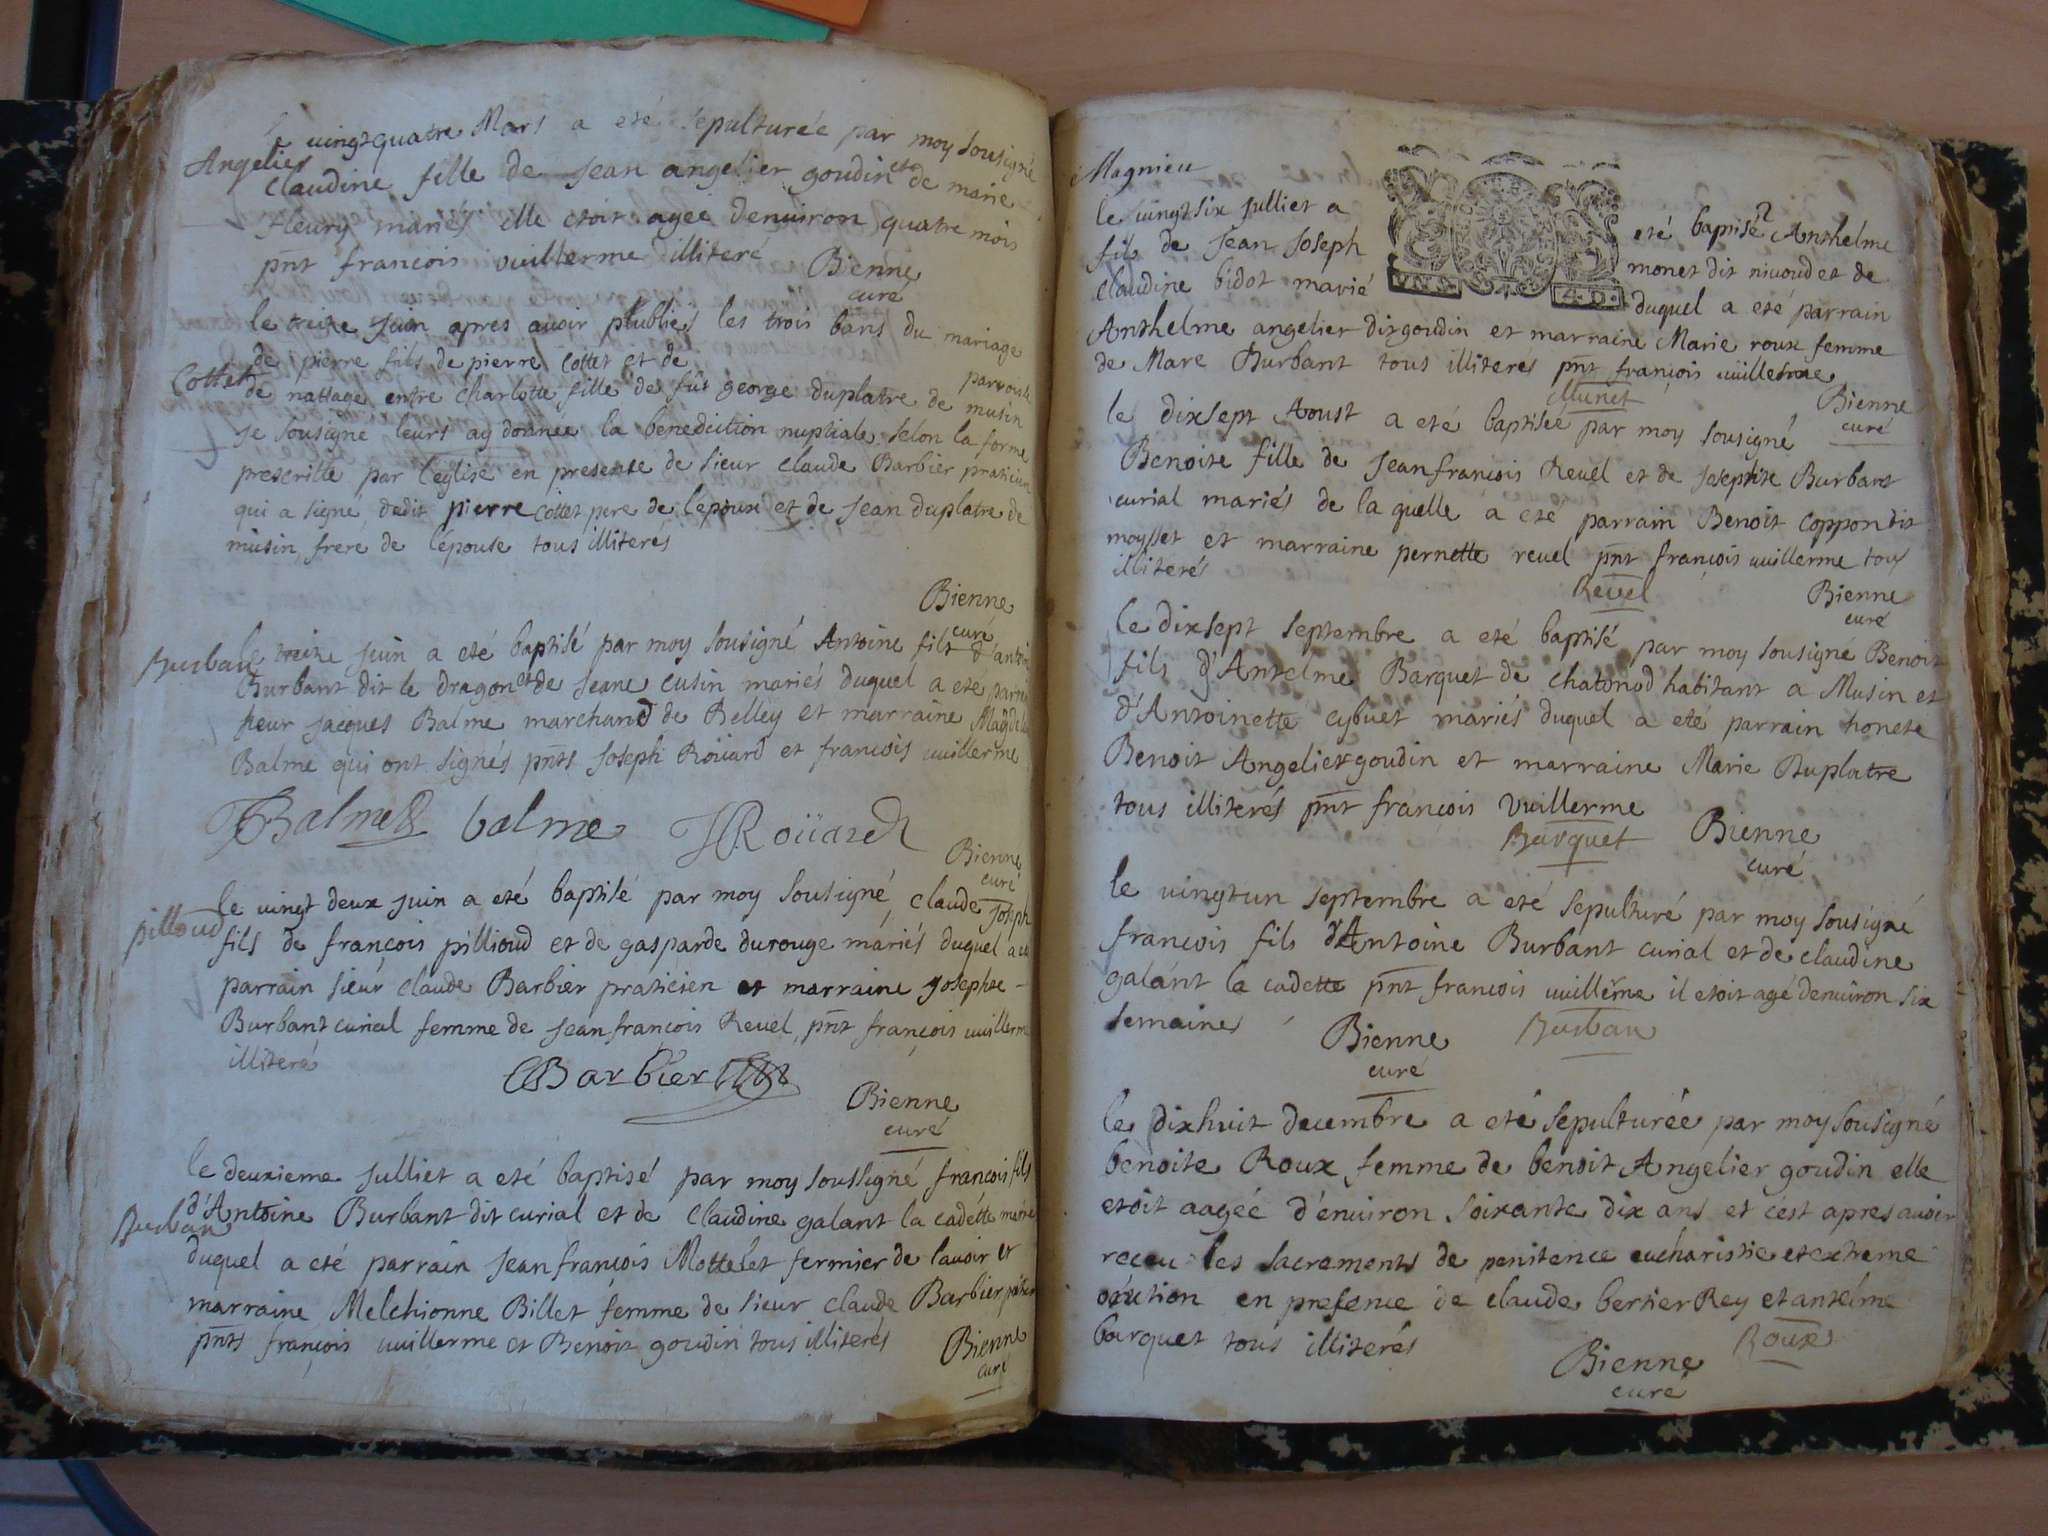 le vingtquatre Mars a eté sepulturée par moy sousigné
Angelier
claudine fille de Jean angelier goudin et de marie
fleury mariés elle etoit agee denuiron quatre mois
pnt francois vuillerme illiteré Bienne
curé
le treize Juin apres avoir plublies les trois bans du mariage
de pierre fils de pierre Cottet et de
Cottet
parroisse
de nattage entre charlotte fille de fût george duplatre de musin
je sousigné leurs ay donnee la benediction nuptiale selon la forme
prescritte par l'eglise en presente de sieur claude Barbier praticien
qui a signé dedit pierre Cottet pere de lepoux et de Jean duplatre de
musin frere de lepouse tous illiterés
Bienne
curé
Burban
le treize Juin a eté baptisé par moy sousigné Antoine fils d'antoine
Burbant dit le dragon et de Jeane cusin mariés duquel a eté parrain
sieur Jacques Balme marchand de Belley et marraine
Balme qui ont signés pnts Joseph Roüard et francois vuillerme
Balme balme JRoüard
Bienne
curé
le vingt deux juin a eté baptisé par moy sousigné claude Joseph
pilloud
fils de françois pillioud et de gasparde durouge mariés duquel a eté
parrain sieur claude Barbier praticien et marraine Josephte
Burbant curial femme de Jean françois Revel pnt françois vuillerme
illiteré
CBarbier
Bienne
curé
le deuxieme Julliet a eté baptisé par moy soussigné françois fils
Burban
d'Antoine Burbant dit curial et de claudine galant la cadette mariés
duquel a eté parrain Jean françois Mottelet fermier de lavoir et
marraine Melchionne Billet femme de sieur claude Barbier
pnts françois vuillerme et Benoit goudin tous illiterés Bienne
curé
Magnieu
le vingtsix Julliet a eté baptisé Anthelme
fils de Jean Joseph monet dit nivoud et de
claudine bidot marié duquel a eté parrain
UNS. 4.D.
Anthelme angelier dit goudin et marraine Marie roux femme
de Marc Burbant tous illiterés pnt françois vuillerme
Munet
Bienne
curé
le dixsept Aoust a eté baptisée par moy sousigné
Benoite fille de Jean francois Revel et de Josephte Burbant
curial mariés de la quelle a eté parrain Benoit coppon dit
moysset et marraine pernette revel pnt françois vuillerme tous
illiterés
Revel
Bienne
curé
le dixsept septembre a eté baptisé par moy sousigné Benoit
fils d'Antelme Barquet de chatonod habitant a Musin et
d'Antoinette cybuet mariés duquel a eté parrain honete
Benoit Angelier goudin et marraine Marie Duplatre
tous illiterés pnt françois vuillerme
Barquet Bienne
curé
le vingtun septembre a eté sepulturé par moy sousigné
francois fils d'Antoine Burbant curial et de claudine
galant la cadette pnt francois vuillerme il etoit agé denuiron six
semaines
Bienne
curé
Burban
le dixhuit decembre a eté sepulturée par moy sousigné
benoite Roux femme de benoit Angelier goudin elle
etoit aagée d'enuiron soixante dix ans et c'est apres auoir
receu les sacrements de penitence eucharistie et extreme
onction en presence de claude bertier Rey et antelme
barquet tous illiterés
Roux
Bienne
curé